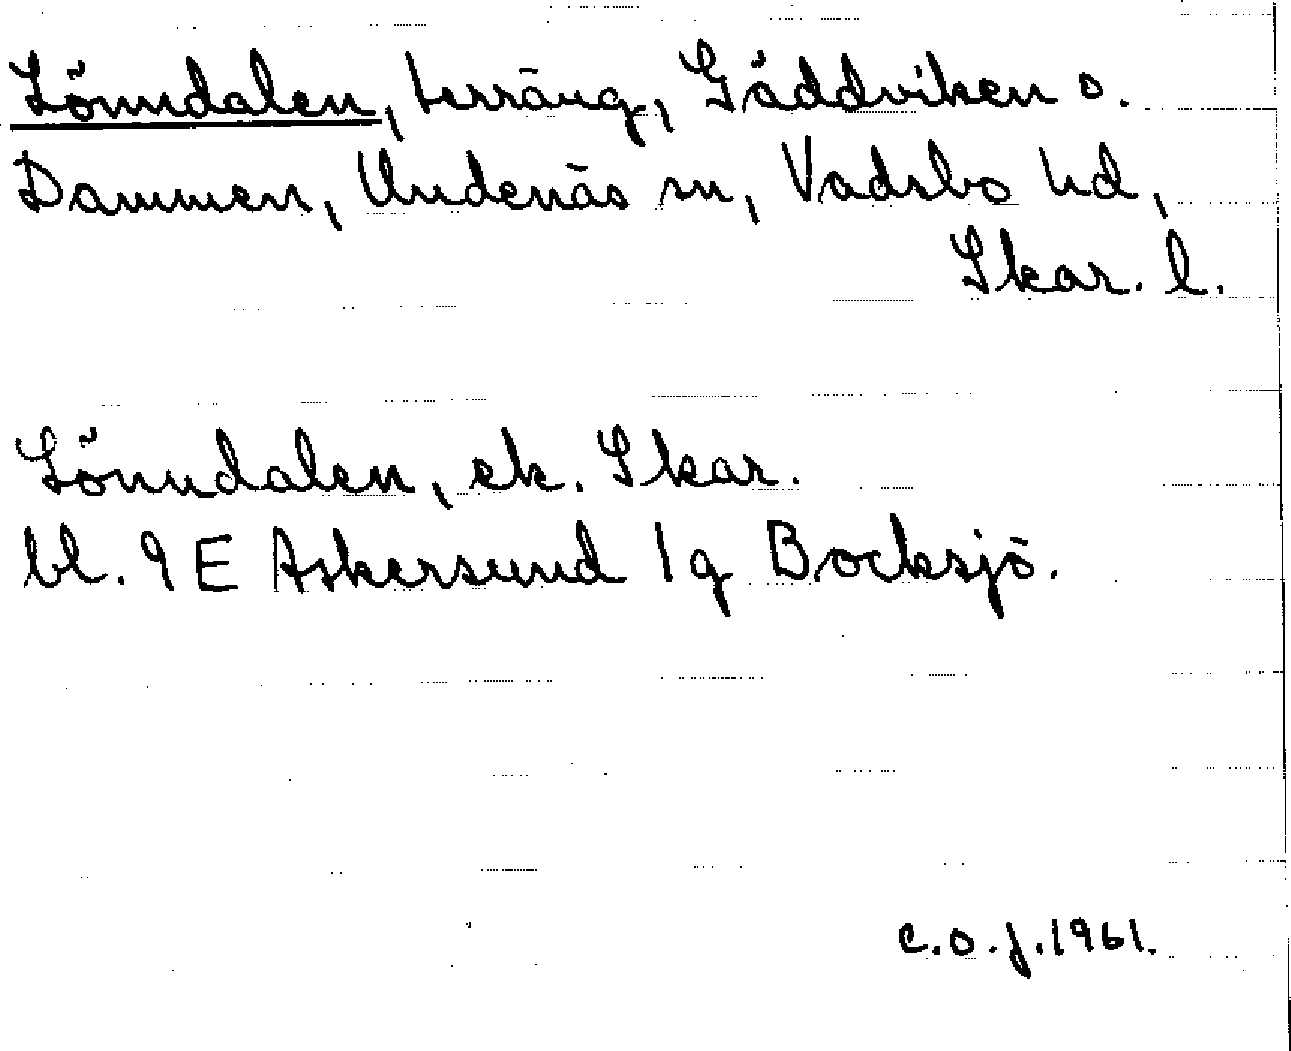 Lönndalen, terräng, Gäddviken o.
Dammen, Undenäs sn, Vadsbo hd,
Skar. l.
Lönndalen, ek. Skar.
bl. 9 E Askersund 1g Bocksjö.
C.O.J. 1961.